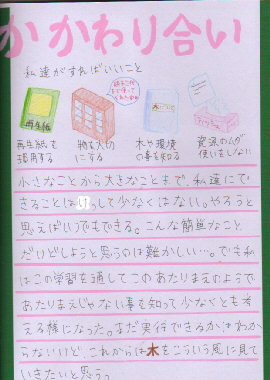 かかわり合い
私達がすればいいこと
再生紙
木に
再生紙を
採用する
物を大切
にする
木や環境
の事を知る
資源のムダ
使いをしない
小さなことから大きなことまで、私達にで
きることはけっして少なくはない。やろうと
思えばいつでもできる。こんな簡単なこと
だけどしようと思うのは難かしい…。でも私
はこの学習を通してこのあたりまえのようで
あたりまえじゃない事を知って少なくとも考
える様になった。まだ実行できるかはわか
らないけど、これからは木をこういう風に見て
いきたいと思う。